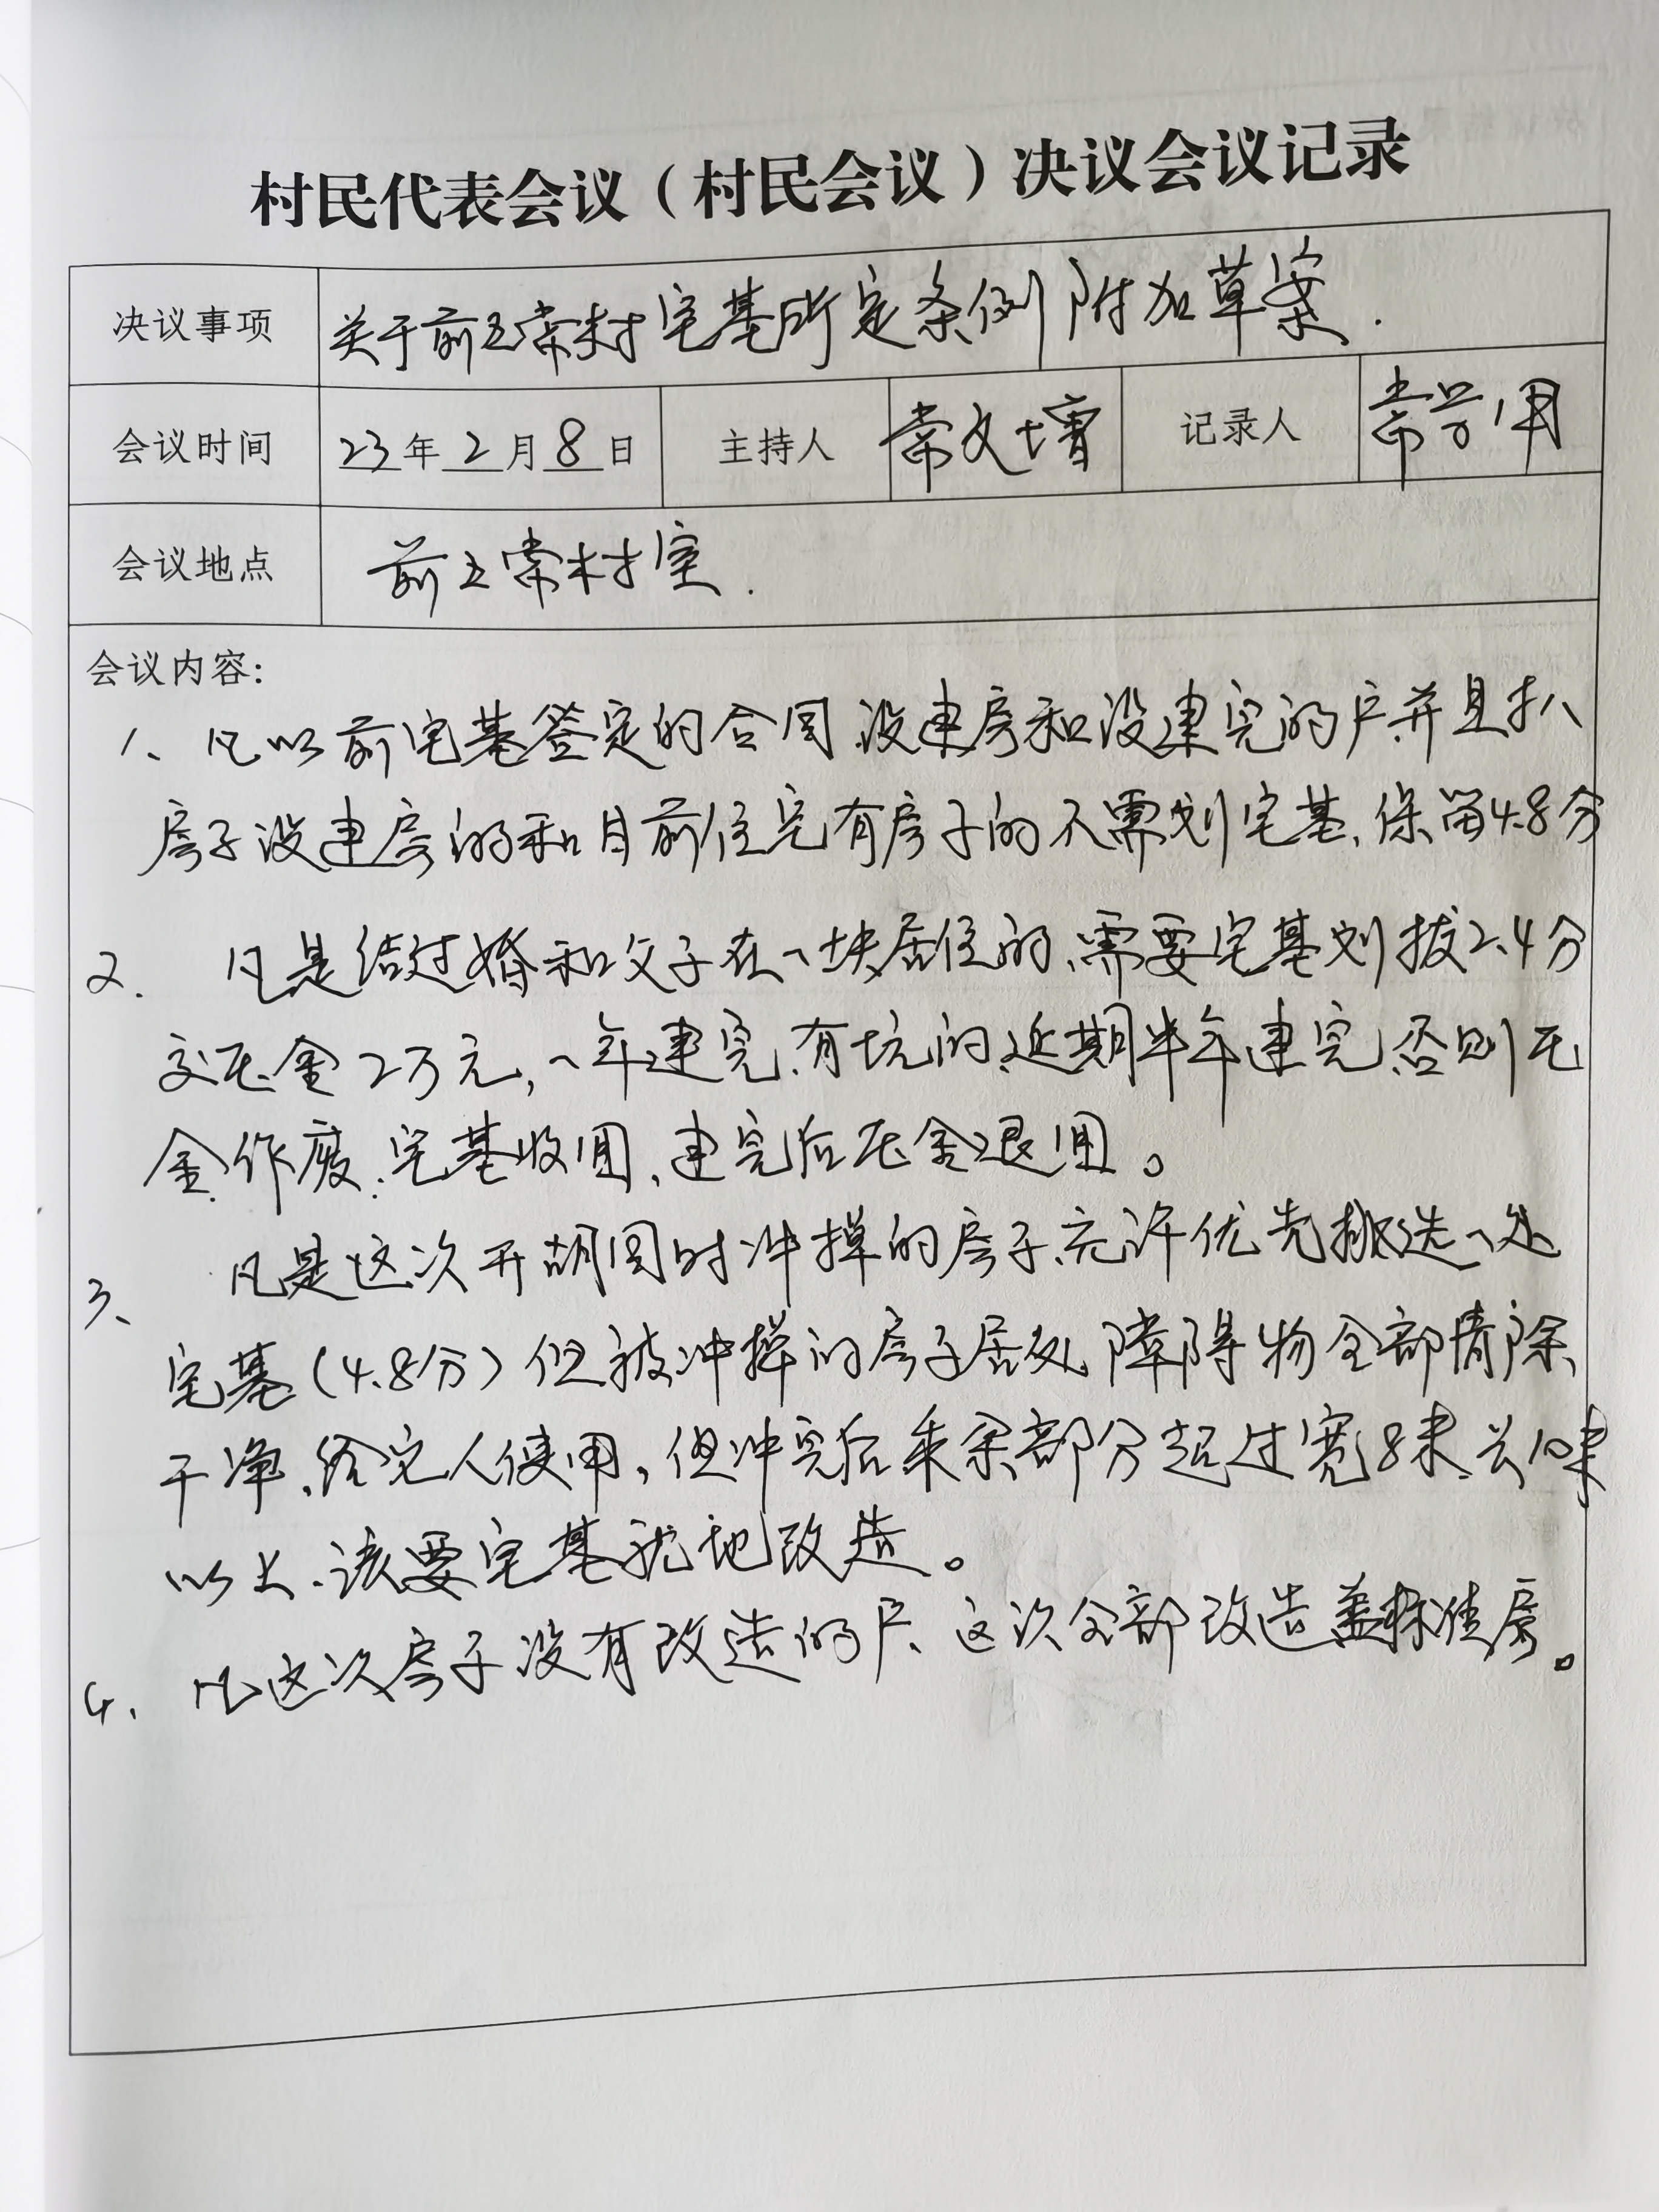 村民代表会议（村民会议）决议会议记录
决议事项 关于前王常村宅基所定条例附加草案.
会议时间 23年2月8日 主持人 常文增 记录人 常
会议地点 前王常村室.
会议内容：
1、凡以前宅基签定的合同、没建房和没建完的户并且扒
房子没建房的和目前住宅有房子的不需划宅基、保留4.8分
2. 凡是结过婚和父子在一块居住的、需要宅基划拔2.4分
交压金2万元，一年建完、有坑的、近期半年建完、否则压
金作废、宅基收回、建完后压金退回。
3、 凡是这次开胡同时冲掉的房子、允许优先挑选一处
宅基（4.8分）但被冲掉的房子居处障碍物全部清除
干净、给它人使用，但冲完后乘余部分超过宽8米、长10米
以上、该要宅基就地改造。
4、凡这次房子没有改造的户、这次全部改造盖标准房。